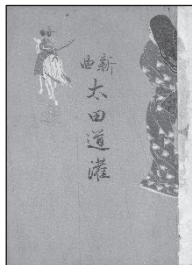 新曲
太田道灌